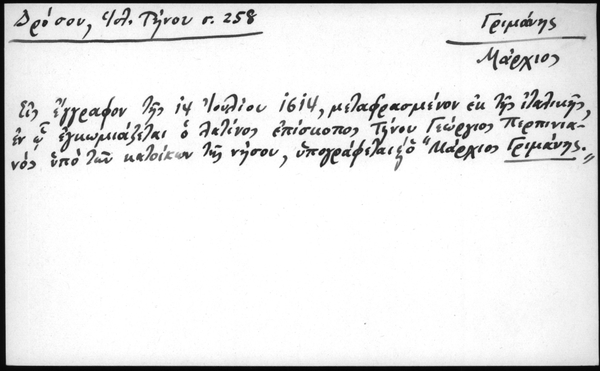 Δρόσου, Ἱστ. Τήνου σ. 258
Γριμάνης
Μάρχιος
Εἰς ἔγγραφον τῆς 14 Ἰουλίου 1614, μεταφρασμένον ἐκ τῆς ἰταλικῆς,
ἐν ᾧ ἐγκωμιάζεται ὁ λατῖνος ἐπίσκοπος Τήνου Γεώργιος Περπινια-
νός ὑπό τῶν κατοίκων τῆς νήσου, ὑπογράφεται ὁ "Μάρχιος Γριμάνης."